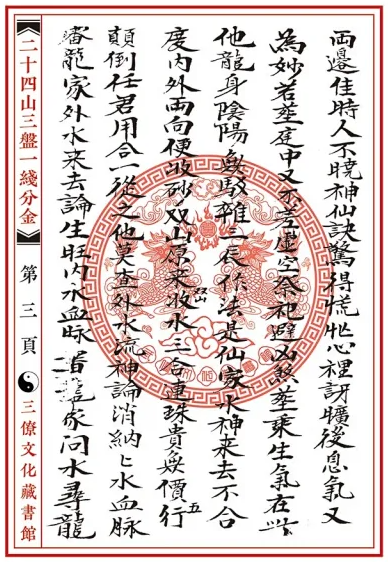 両邉佳時人不曉神仙訣驚得慌忙心裡訝曠後息氣又
為妙若塟庭中又不若虛空祭祀避凶煞塟乘生氣在
他龍身陰陽無駁雜三長作法是仙家水神來去不合
度內外両向便收砂双山原來收水三合連珠貴無價五行
双山
顛倒任君用合一從之他莫查外水流神論消納內水血脉
龍家外水來去論生旺內水血脉龍家问水尋龍
【二十四山三盤一綫分金】
第三頁
三僚文化藏書館